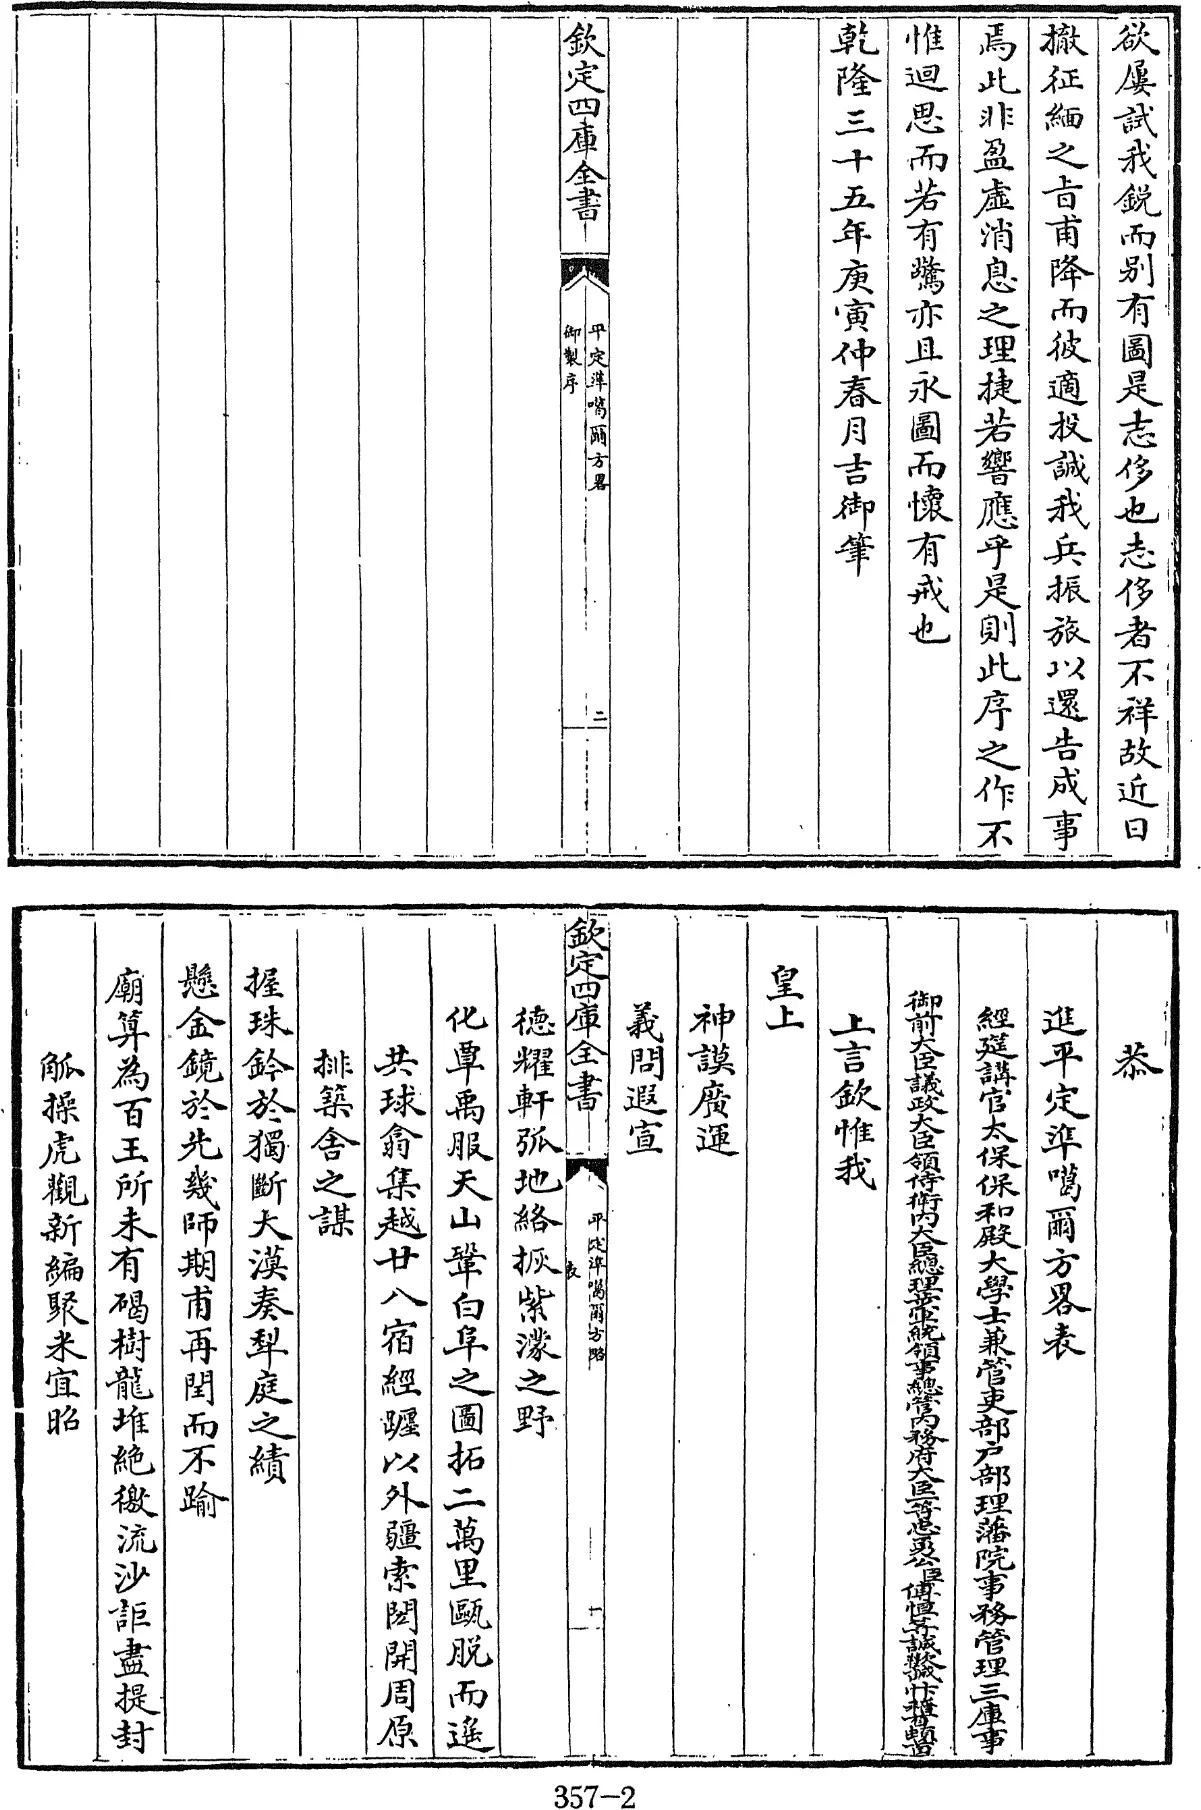 欲屢試我鋭而别有圖是志侈也志侈者不祥故近日
撤征緬之㫖甫降而彼適投誠我兵振旅以還告成事
焉此非盈虛消息之理捷若響應乎是則此序之作不
惟迴思而若有驚亦且永圖而懐有戒也
乾隆三十五年庚寅仲春月吉御筆
欽定四庫全書
平定準噶爾方畧
御製序
二
恭
進平定準噶爾方畧表
經筵講官太保保和殿大學士兼管吏部户部理藩院事務管理三庫事
御前大臣議政大臣領侍衛内大臣總理統領事總管内務府大臣等忠勇公臣傅恒等誠
上言欽惟我
皇上
神謨廣運
義問遐宣
徳耀軒弧地絡振紫濛之野
欽定四庫全書
平定準噶爾方略
表
一
化覃禹服天山鞏白阜之圖拓二萬里甌脱而遥
共球翕集越廿八宿經躔以外疆索閎開周原
排築舍之謀
握珠鈐於獨斷大漠奏犂庭之績
懸金鏡於先幾師期甫再閏而不踰
廟算為百王所未有碣樹龍堆絶徼流沙詎盡提封
觚操虎觀新編聚米宜昭
357-2